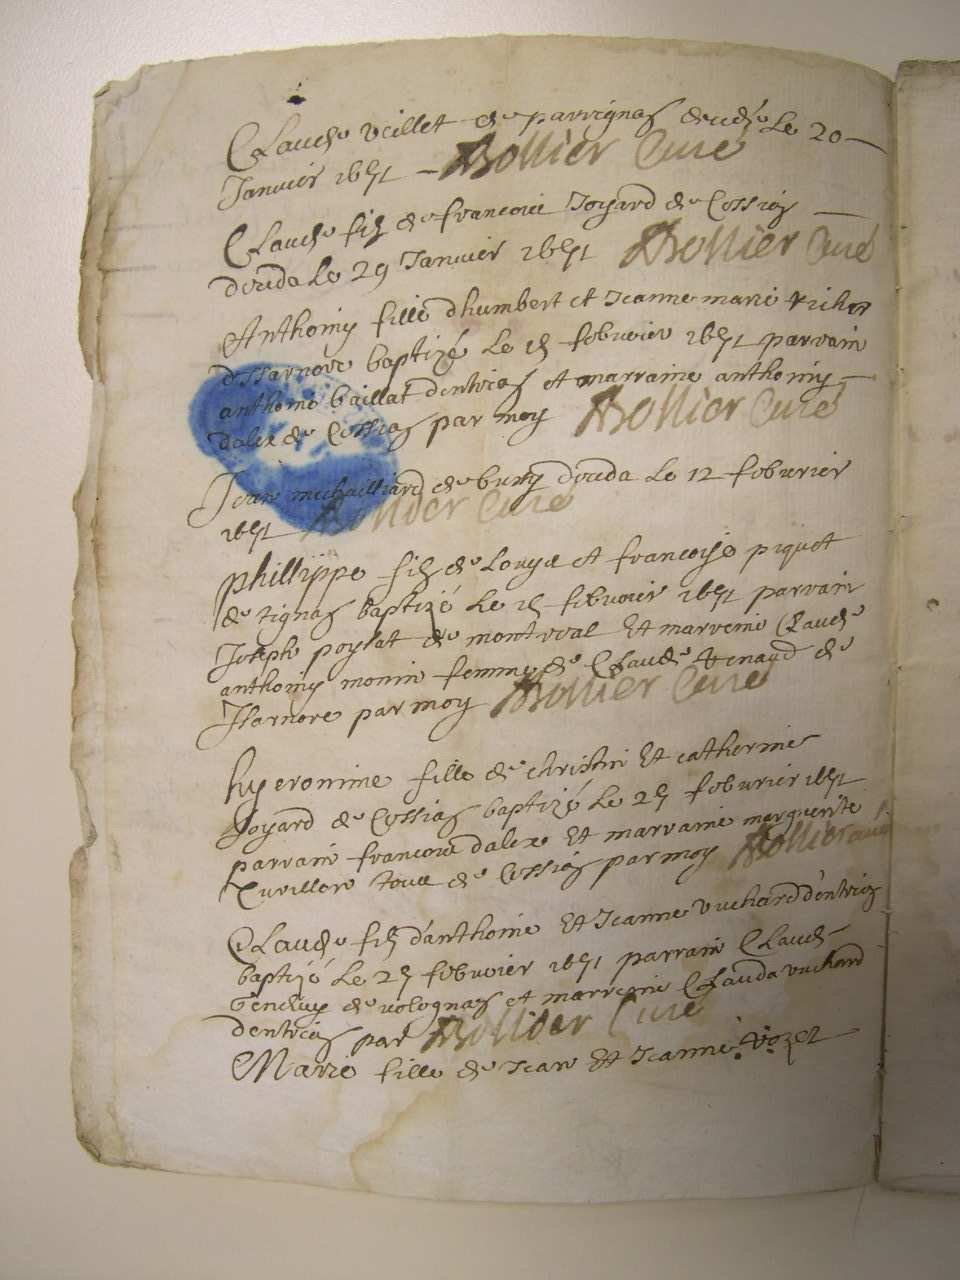 Claude veillet de parrignas deceda Le 20
Janvier 1651 Bollier Curé
Claude filz de francois Joyard de Cessias
deceda Le 29 Janvier 1651 Bollier Curé
Anthoiny fille dhumbert et Jeanne marie
dIsarnore baptizé Le 15 febvrier 1651 parrain
anthoine baillat dentrias et marraine anthoiny
dalex de Cessias par moy Bollier Curé
Jean michailliard de deceda Le 12 febvrier
1651 Bollier Curé
phillippe filz de Louys et francoise piquet
de tignas baptizé Le 15 febvrier 1651 parrain
Joseph poylat de montreal Et marreine Claude
anthoiny monin femme de Claude Renaud de
Isarnore par moy Bollier Curé
hyeronime fille de christin Et catherine
Joyard de Cessias baptizé Le 25 febvrier 1651
parrain francois dalex Et marraine marguerite
de Cessias par moy Bollier curé
Claude filz d'anthoine Et Jeanne vuchard d'entrias
baptizé Le 25 febvrier 1651 parrain Claude
de volognas et marreine Clauda vuchard
dentrias par Bollier Curé
Marie fille de Jean Et Jeanne